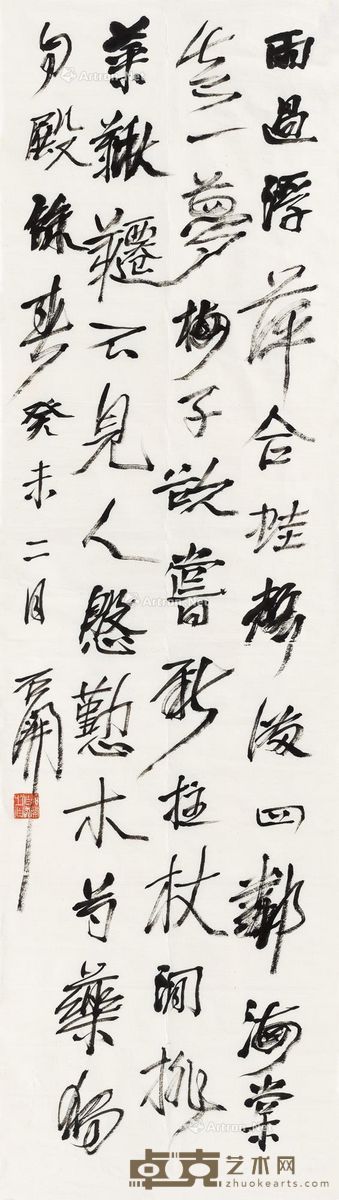 雨過浮萍合蛙聲滿四鄰海棠
真一夢梅子欲嘗新拄杖閒挑
菜鞦韆不見人慇懃木芍藥獨
自殿餘春癸未二月
石開
卓克艺术网
www.zhuokearts.com